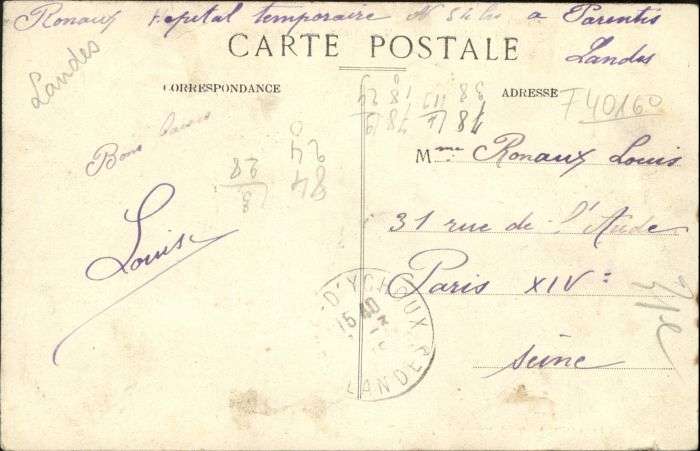 Ronaux Hopital temporaire N 54 bis a Parentis
Landes
Landes
CARTE POSTALE
CORRESPONDANCE
ADRESSE
F40160
Bons baisers
Louis
Mme Ronaux Louis
31 rue de l'Aude
Paris XIVe
Seine
D'YCHOUX
15 40
LANDES
84
24
0
28